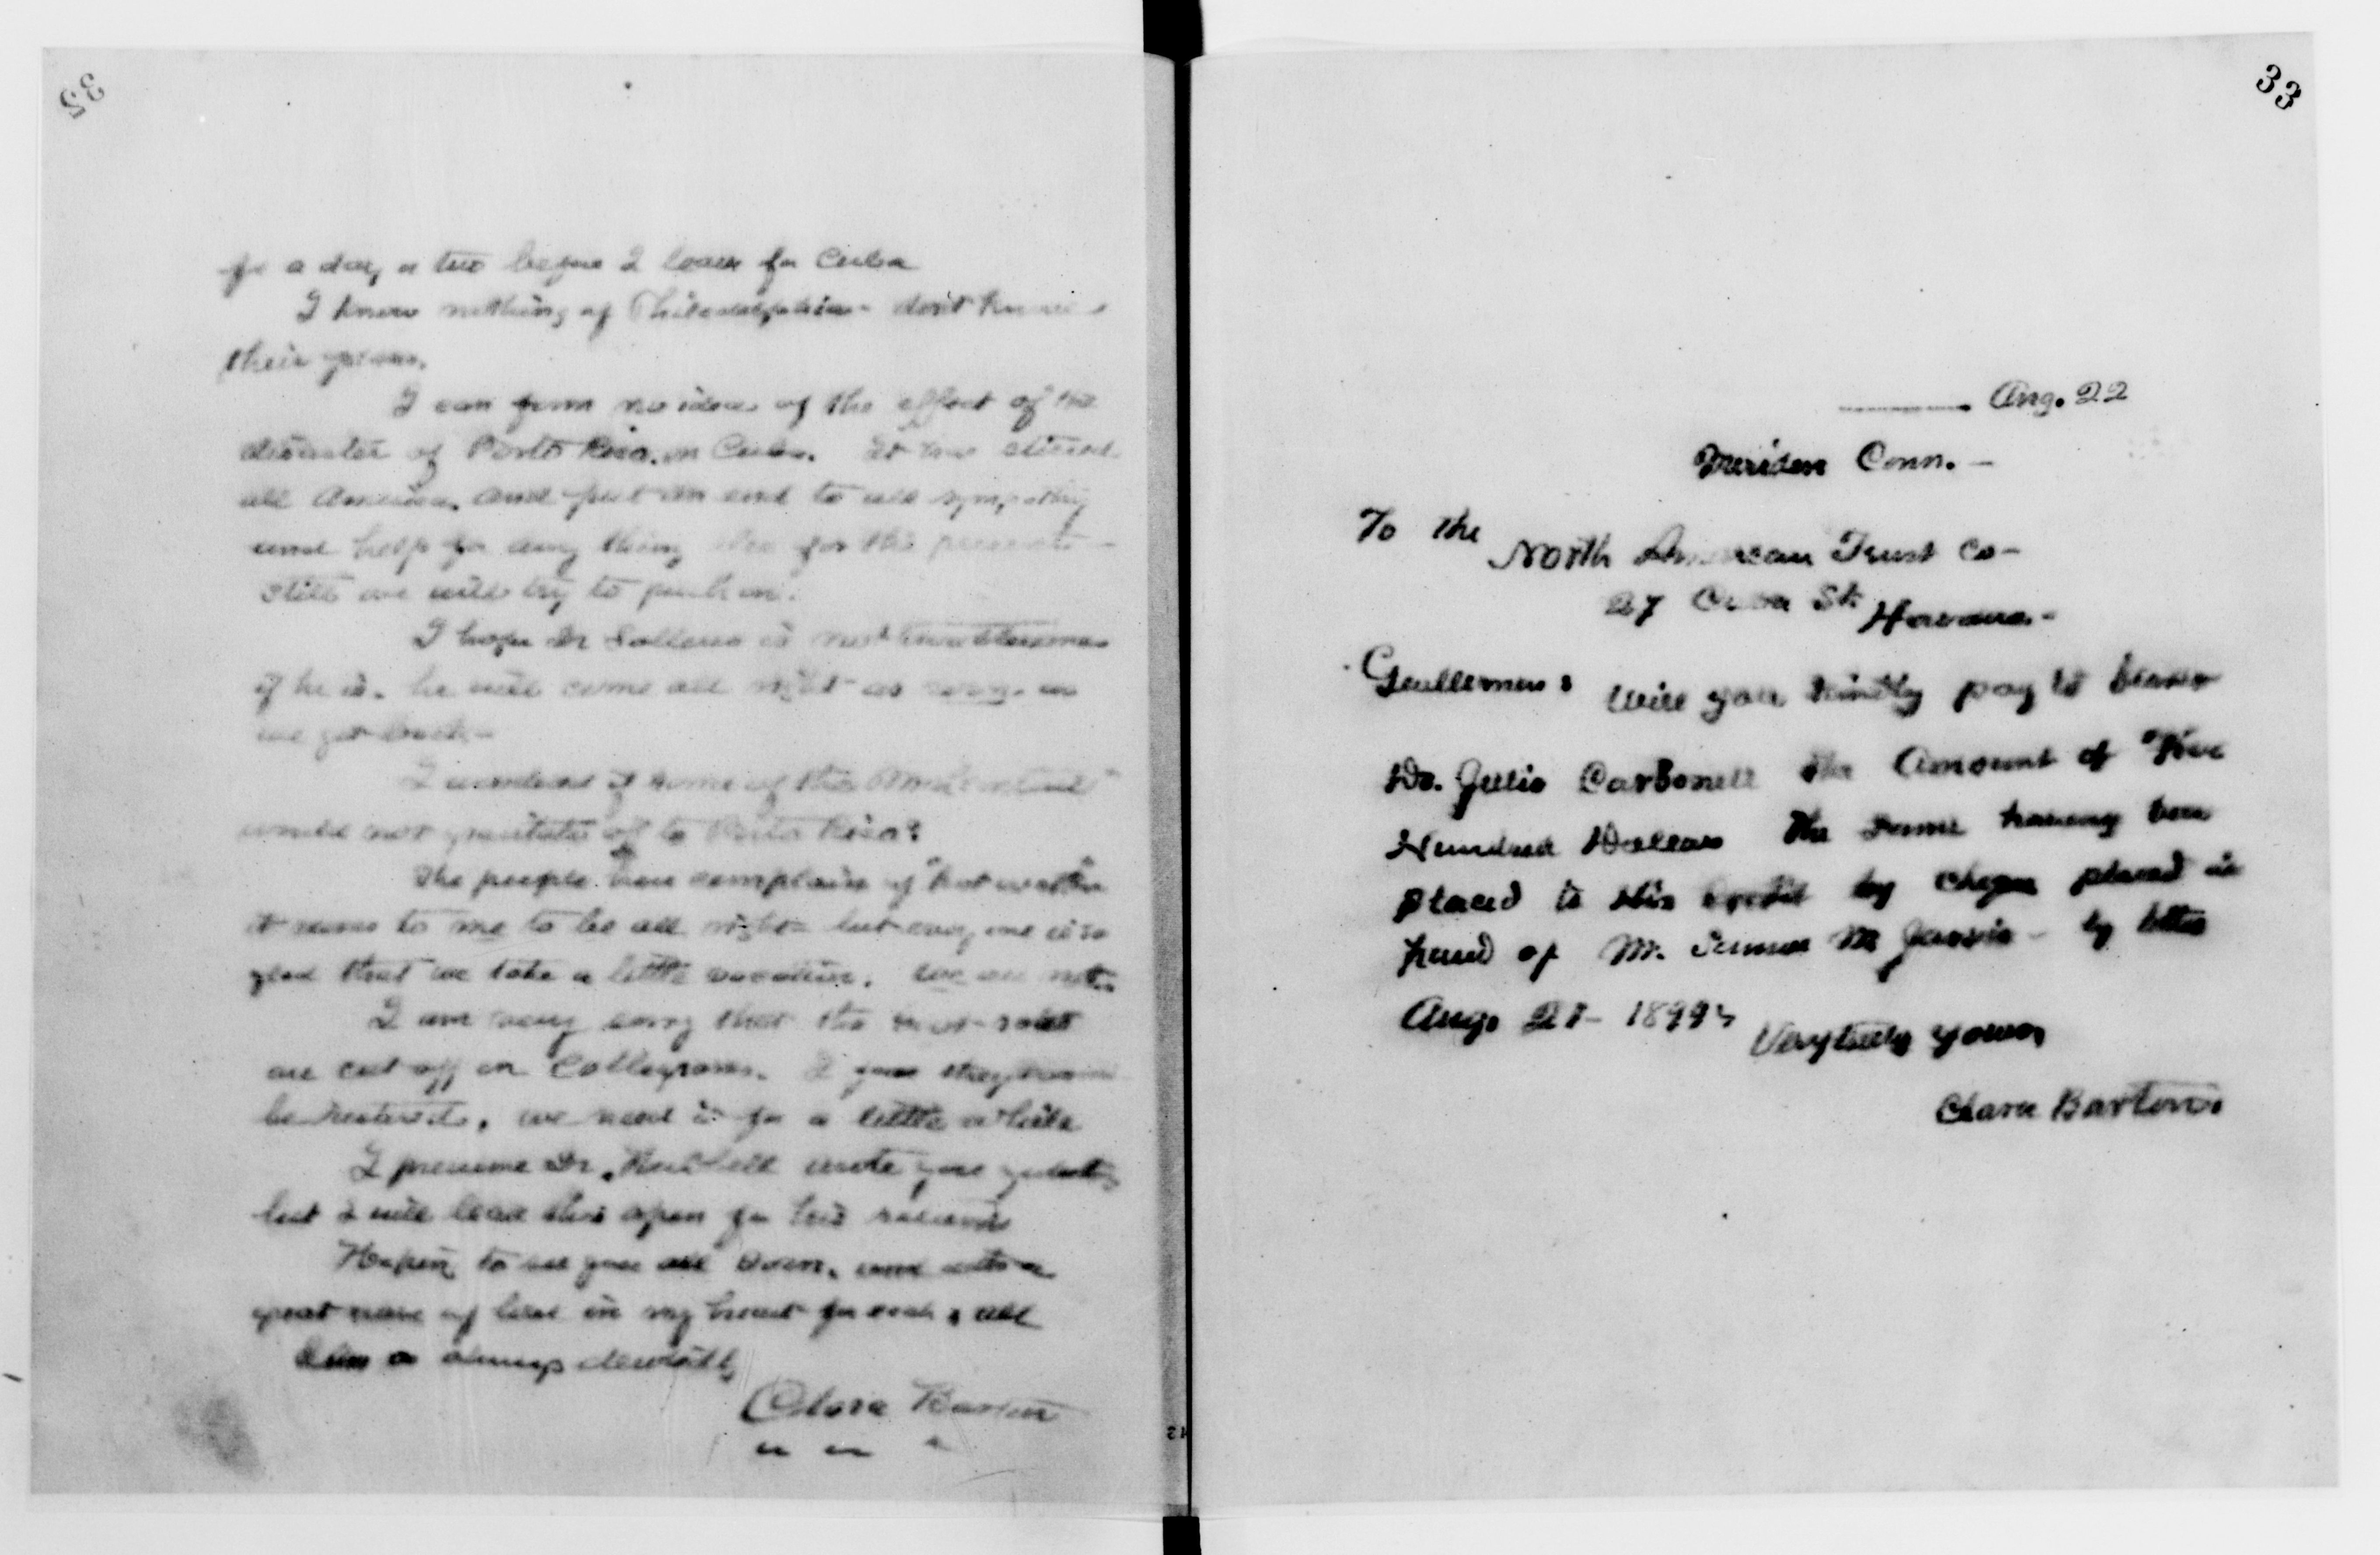 32
for a day or two before I leave for Cuba
I know nothing of Philadelphia - don't know
their plans.
I can form no idea of the effect of the
disaster of Porto Rico, on Cuba. It has stirred
all America, and put an end to all sympathy
and help for any thing else for the present -
still we will try to push on.
I hope Dr Solleso is not
if he is, he will come all right as soon as
we get back -
I wondered if some of the
would not gravitate off to Porto Rico?
The people here complain of "hot weather"
it seems to me to be all right - but every one is so
glad that we take a little vacation. We are not.
I am very sorry that the
are cut off on Cablegrams. I they
be restored, we need it for a little while
I presume Dr. Hubbell wrote you
but I will leave this open for his
Hoping to see you all soon, and with a
great of love in my heart for each & all
I am as always devotedly
Clara Barton
33
Aug. 22
Meriden Conn. -
To the
North American Trust Co -
27 Cuba St. Havana. -
Gentlemen: Will you kindly pay to bearer
Dr. Julio Carbonell the Amount of Five
Hundred Dollars the same having been
placed to this credit by cheque placed in
hand of Mr. M Jarvis - by letter
Aug. 21 - 1899.
Very truly yours,
Clara Barton.